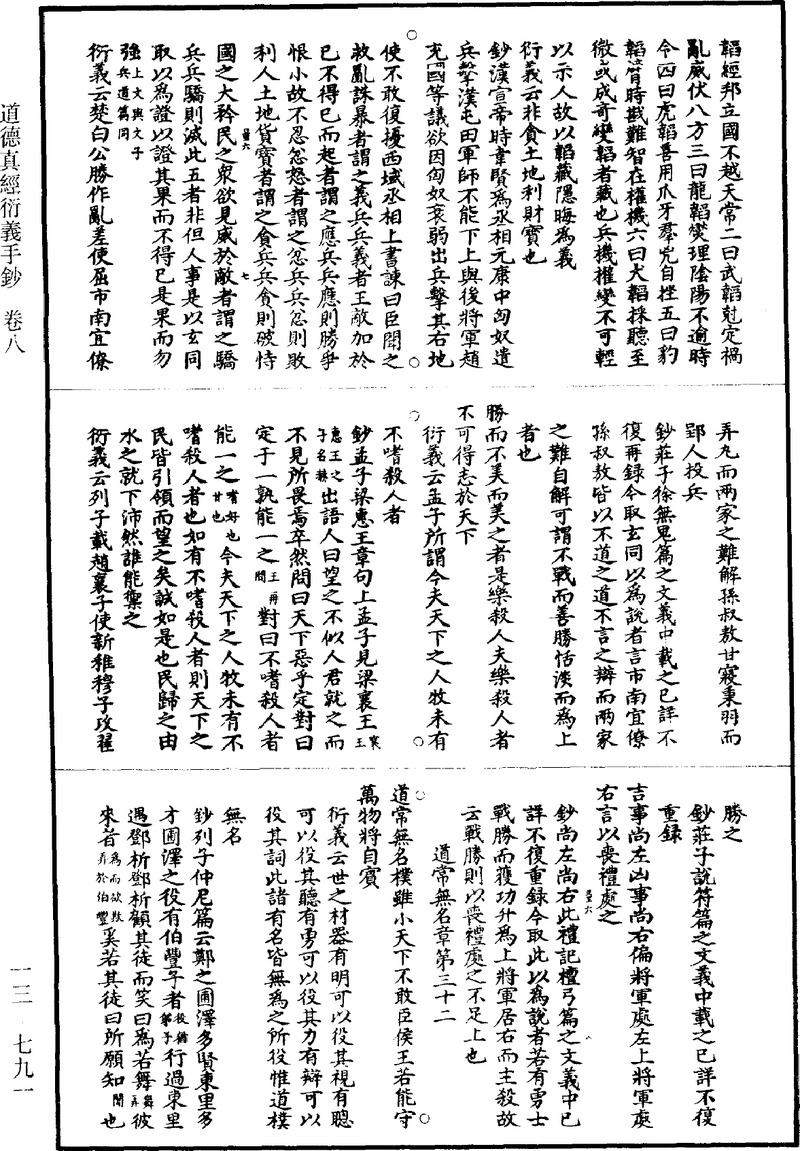 韜經邦立國不越天常二曰武韜剋定禍
亂威伏八方三曰龍韜燮理陰陽不逾時
令四曰虎韜善用爪牙羣兇自挫五曰豹
韜臂時戡難智在權機六曰犬韜採聽至
微或成奇變韜者藏也兵機權變不可輕
以示人故以韜藏隱晦為義
衍義云非貪土地利財寶也
鈔漢宣帝時韋賢為丞相元康中匈奴遣
兵擊漢屯田軍師不能下上與後將軍趙
充國等議欲因匈奴衰弱出兵擊其右地
使不敢復擾西域丞相上書諫曰臣聞之
救亂誅暴者謂之義兵兵義者王敵加於
已不得已而起者謂之應兵兵應則勝爭
恨小故不忍忿怒者謂之忿兵兵忿則敗
利人土地貨寶者謂之貪兵兵貪則破恃
國之大矜民之衆欲見威於敵者謂之驕
兵兵驕則滅此五者非但人事是以玄同
取以為證以證其果而不得已是果而勿
強上文與文子兵道篇同
衍義云楚白公勝作亂差使屈市南宜僚
弄丸而兩家之難解孫叔敖甘寢秉羽而
郢人投兵
鈔莊子徐無鬼篇之文義中載之已詳不
復再錄今取玄同以為說者言市南宜僚
孫叔敖皆以不道之道不言之辯而兩家
之難自解可謂不戰而善勝恬淡而為上
者也
勝而不美而美之者是樂殺人夫樂殺人者
不可得志於天下
衍義云孟子所謂今夫天下之人牧未有
不嗜殺人者
鈔孟子梁惠王章句上孟子見梁襄王襄王
惠王之子名赫出語人曰望之不似人君就之而
不見所畏焉卒然問曰天下惡乎定對曰
定于一孰能一之王再問對曰不嗜殺人者
能一之嗜好也甘也今夫天下之人牧未有不
嗜殺人者也如有不嗜殺人者則天下之
民皆引領而望之矣誠如是也民歸之由
水之就下沛然誰能禦之
衍義云列子載趙襄子使新稚穆子攻翟
勝之
鈔莊子說符篇之文義中載之已詳不復
重錄
吉事尚左凶事尚右偏將軍處左上將軍處
右言以喪禮處之
鈔尚左尚右此禮記檀弓篇之文義中已
詳不復重錄今取此以為說者若有勇士
戰勝而獲功升為上將軍居右而主殺故
云戰勝則以喪禮處之不足上也
道常無名章第三十二
道常無名樸雖小天下不敢臣侯王若能守
萬物將自賓
衍義云世之材器有明可以役其視有聰
可以役其聽有勇可以役其力有辯可以
役其詞此諸有名皆無為之所役惟道樸
無名
鈔列子仲尼篇云鄭之圃澤多賢東里多
才圃澤之役有伯豐子者役猶弟子行過東里
遇鄧析鄧析顧其徒而笑曰為若舞舞弄彼
來者為而欲敖弄於伯豐奚若其徒曰所願知聞也
道德真經衍義手鈔 卷八
一三·七九一